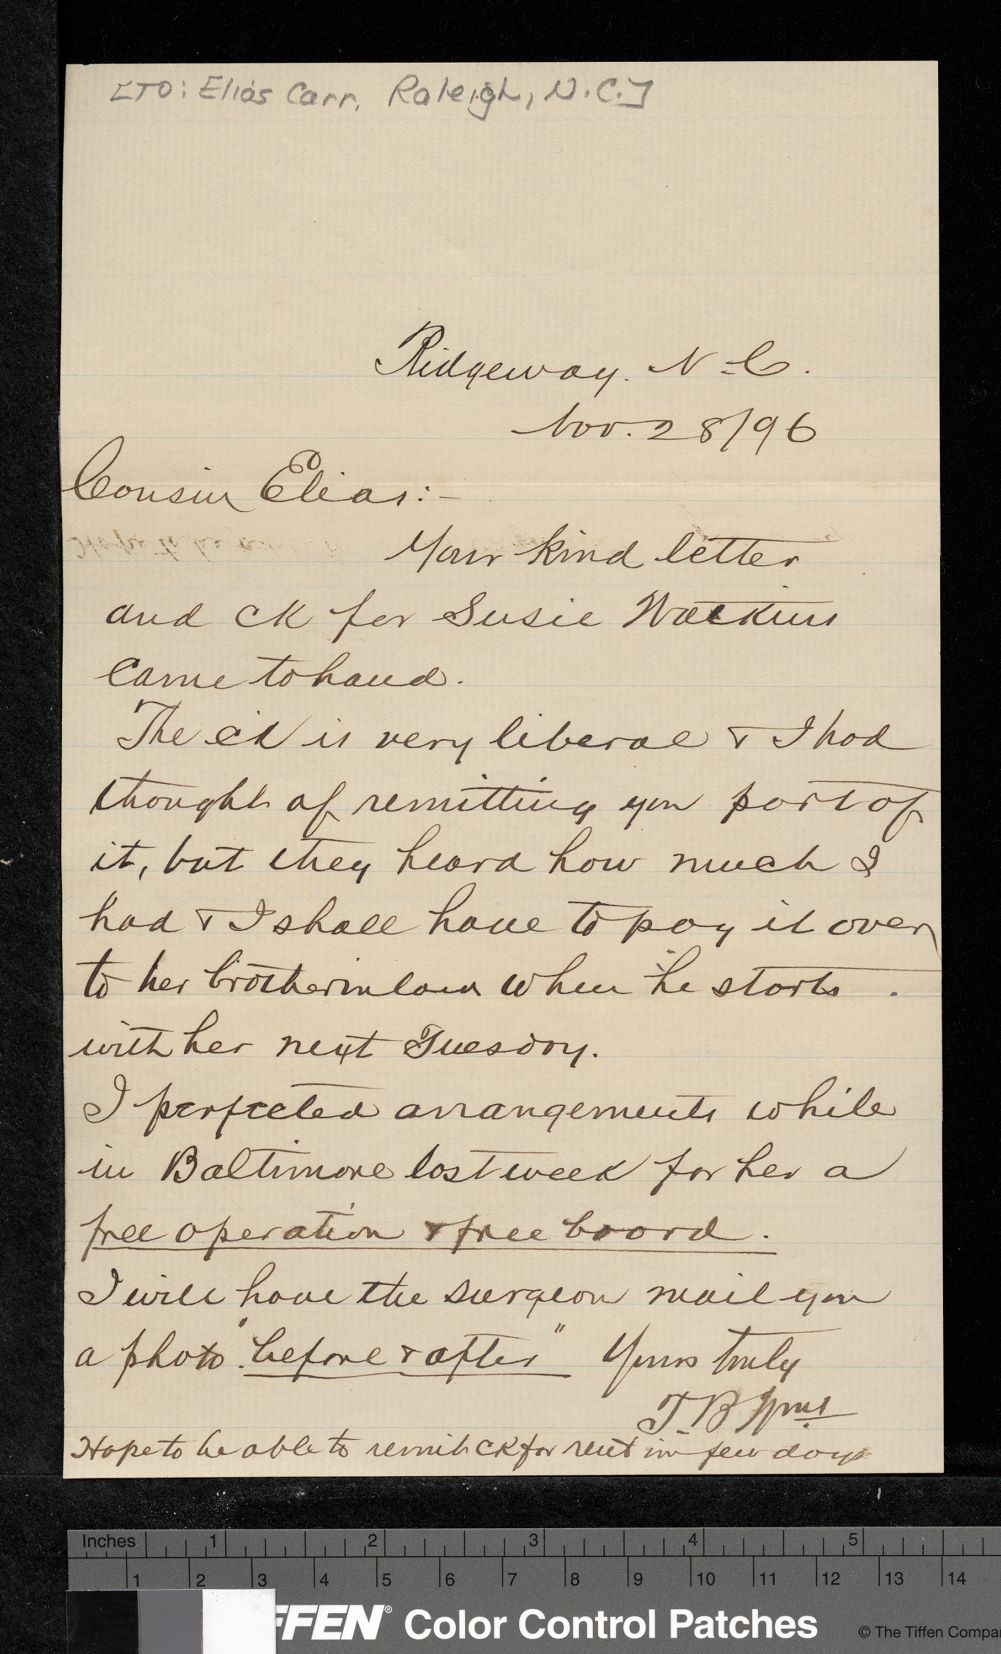 [TO: Elias Carr, Raleigh, N.C.]
Ridgeway. N-C.
Nov. 28/96
Cousin Elias:-
Your kind letter
and ck for Susie Watkins
came to hand.
The ck is very liberal & I had
thought of remitting you part of
it, but they heard how much I
had & I shall have to pay it over
to her brotherinlaw when he starts
with her next Tuesday.
I perfected arrangements while
in Baltimore last week for her a
free operation & free board.
I will have the surgeon mail you
a photo "before & after" Yours truly
T B Wms
Hope to be able to remit ck for rent in few days
Inches 1 2 3 4 5
1 2 3 4 5 6 7 8 9 10 11 12 13 14
FFEN® Color Control Patches © The Tiffen Compa